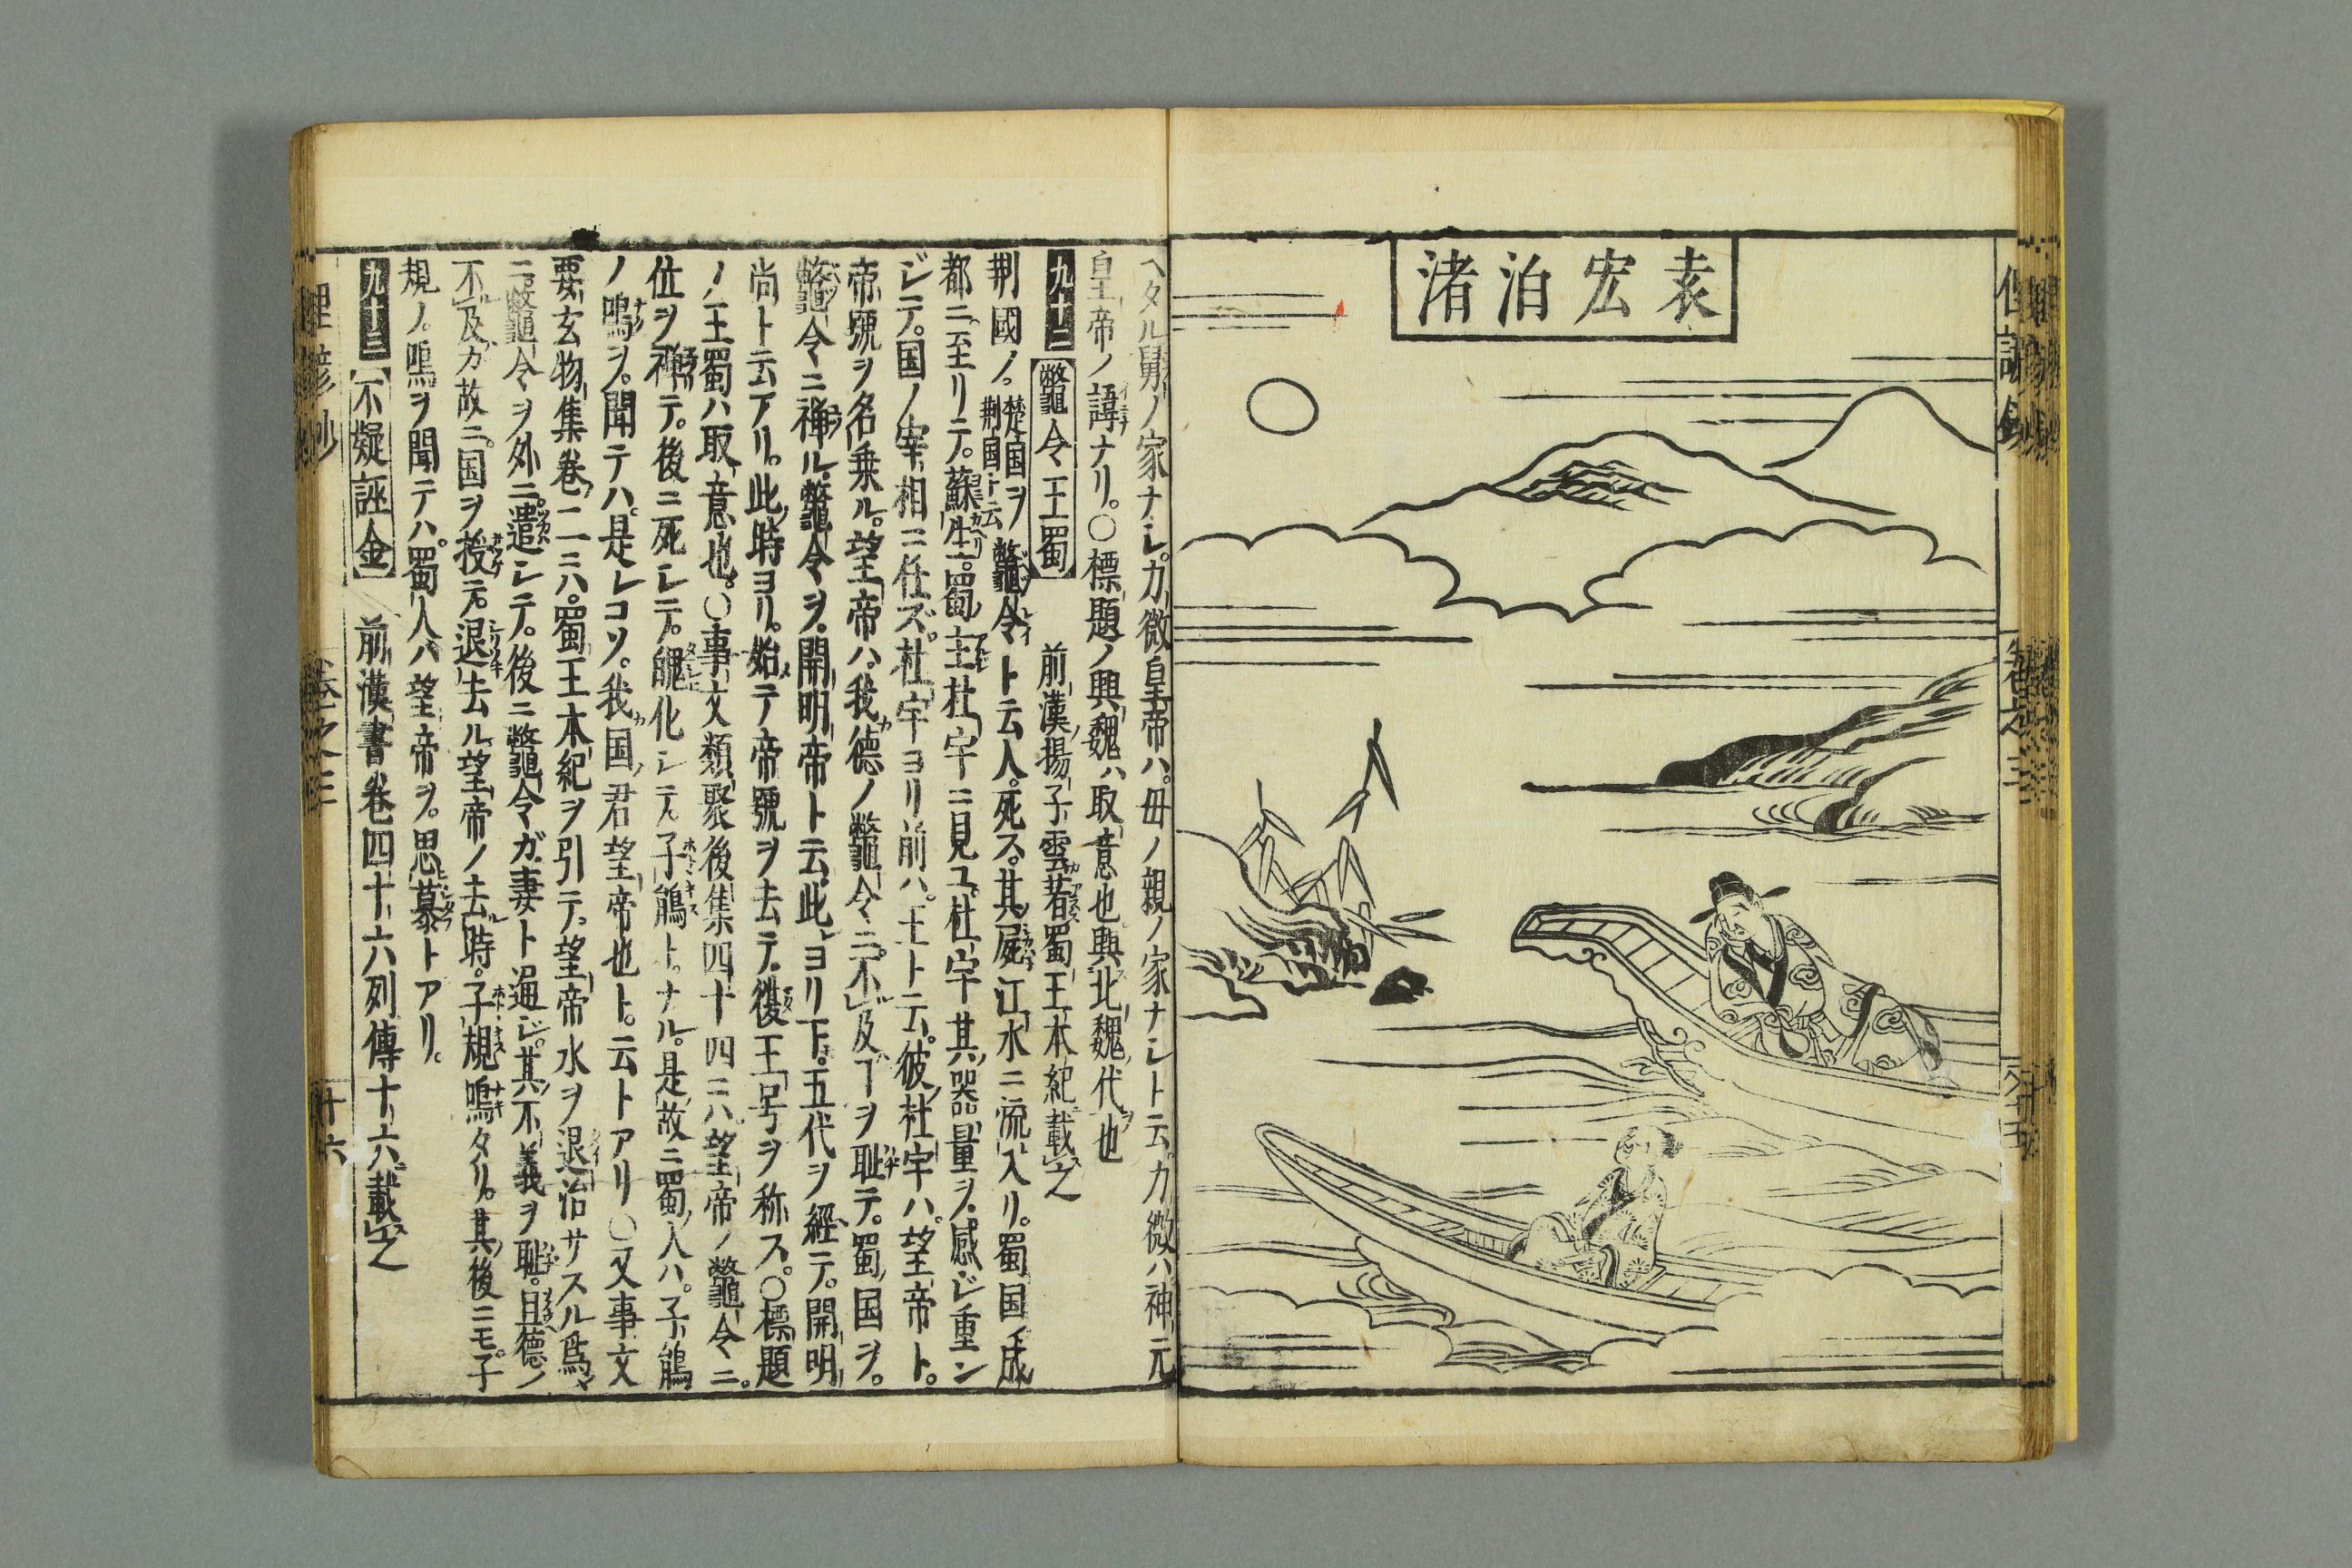 袁宏泊渚
ヘタル舅ノ家ナシ。力微皇帝ハ。母ノ親ノ家ナシト云。力微ハ神元
皇帝ノ諱ナリ。○標題ノ興魏ハ取意也興北魏代也
九十二 鼈令王蜀 前漢揚子雲著蜀王本紀載之
荆國ノ。楚国ヲ荆国ト云 鼈令ト云人。死ス。其屍江水ニ流入リ。蜀国成
都ニ至リテ。蘇生。蜀主杜宇ニ見ユ。杜宇其器量ヲ感ジ重ン
ジテ。国ノ宰相ニ任ズ。杜宇ヨリ前ハ。王ト云。彼杜宇ハ。望帝ト。
帝號ヲ名乗ル。望帝ハ。我德ノ鼈令ニ。不及フヿヲ耻テ。蜀国ヲ。
鼈令ニ禅ル。鼈令ヲ。開明帝ト云。此ヨリ下。五代ヲ經テ。開明
尚ト云アリ。此時ヨリ。始テ帝號ヲ去テ。復王号ヲ称ス。○標題
ノ王蜀ハ取意也。○事文類聚後集四十四ニハ。望帝ノ鼈令ニ。
位ヲ禅テ。後ニ死シテ。魄化シテ。子鵑トナル。是故ニ蜀人ハ。子鵑
ノ鳴ヲ。聞テハ。是レコソ。我国君望帝也ト。云トアリ○又事文
要玄物集卷二ニハ。蜀王本紀ヲ引テ。望帝水ヲ退治サスル爲
ニ鼈令ヲ外ニ遣シテ。後ニ鼈令ガ妻ト通ジ。其不義ヲ耻。且德ノ
不及カ故ニ。国ヲ授テ。退去ル望帝ノ去時。子規鳴タリ。其後ニモ。子
規ノ。鳴ヲ聞テハ。蜀人ハ望帝ヲ。思慕トアリ。
九十三 不疑誣金 前漢書卷四十六列傳十六載之
卷之三
十六